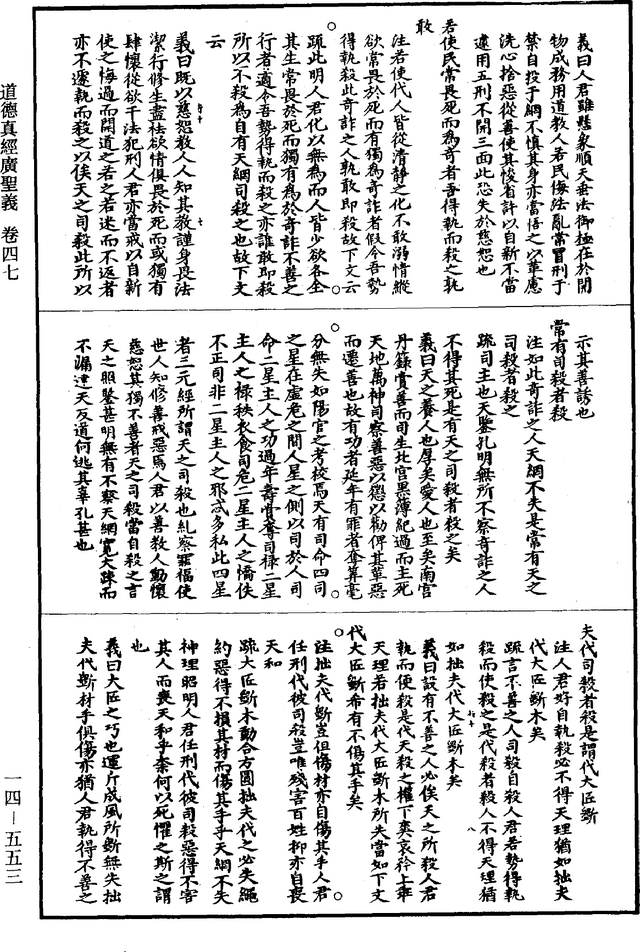 義曰人君雖懸象順天垂法御極在於開
物成務用道教人若民侮法亂常冒刑于
禁自投于網不慎其身亦當悟之以革慮
洗心捨惡從善使其悛省許以自新不當
遽用五刑不開三面此恐失於慈恕也
若使民常畏死而為奇者吾得執而殺之孰
敢
注若使代人皆從清靜之化不敢溺情縱
欲常畏於死而有獨為奇詐者假令吾勢
得執殺此奇詐之人孰敢即殺故下文云
疏此明人君化以無為而人皆少欲各全
其生常畏於死而獨有為於奇詐不善之
行者適令吾勢得執而殺之亦誰敢即殺
所以不殺為自有天網司殺之也故下文
云
義曰既以慈恕教人人知其教謹身畏法
潔行修生盡袪欲情俱畏於死而或獨有
肆懷從欲干法犯刑人君亦當戒以自新
使之悔過而開道之若之若迷而不返者
亦不遽執而殺之以俟天之司殺此所以
示其善誘也
常有司殺者殺
注如此奇詐之人天網不失是常有天之
司殺者殺之
疏司主也天鑒孔明無所不察奇詐之人
不得其死是有天之司殺者殺之矣
義曰天之養人也厚矣愛人也至矣南宮
丹籙賞善而司生北宮黑簿紀過而主死
天地萬神司察善惡以懲以勸俾其革惡
而遷善也故有功者延年有罪者奪筭毫
分無失如陽官之考校焉天有司命四司
之星在虛危之間人星之側以司於人司
命二星主人之功過年壽賞奪司祿二星
主人之祿秩衣食司危二星主人之憍佚
不正司非二星主人之邪忒多私此四星
者三元經所謂天之司殺也糺察罪福使
世人知修善戒惡焉人君以善教人動懷
慈恕其獨不善者天之司殺當自殺之言
天之照鑒甚明無有不察天網寬大疎而
不漏違天反道何逃其辜孔甚也
夫代司殺者殺是謂代大匠斲
注人君好自執殺必不得天理猶如拙夫
代大匠斲木矣
疏言不善之人司殺自殺人君若勢得執
殺而使殺之是代殺者殺人不得天理猶
如拙夫代大匠斲木矣
義曰設有不善之人必俟天之所殺人君
執而便殺是代天殺之權下爽哀矜上乖
天理若拙夫代大匠斲木所失當如下文
代大匠斲希有不傷其手矣
注拙夫代斲豈但傷材亦自傷其手人君
任刑代彼司殺豈唯殘害百姓抑亦自喪
天和
疏大匠斲木動合方圓拙夫代之必失繩
約惡得不損其材而傷其手乎天網不失
神理昭明人君任刑代彼司殺惡得不害
其人而喪天和乎柰何以死懼之斯之謂
也
義曰大匠之巧也運斤成風所斲無失拙
夫代斲材手俱傷亦猶人君執得不善之
道德真經廣聖義 卷四七
一四－五五三